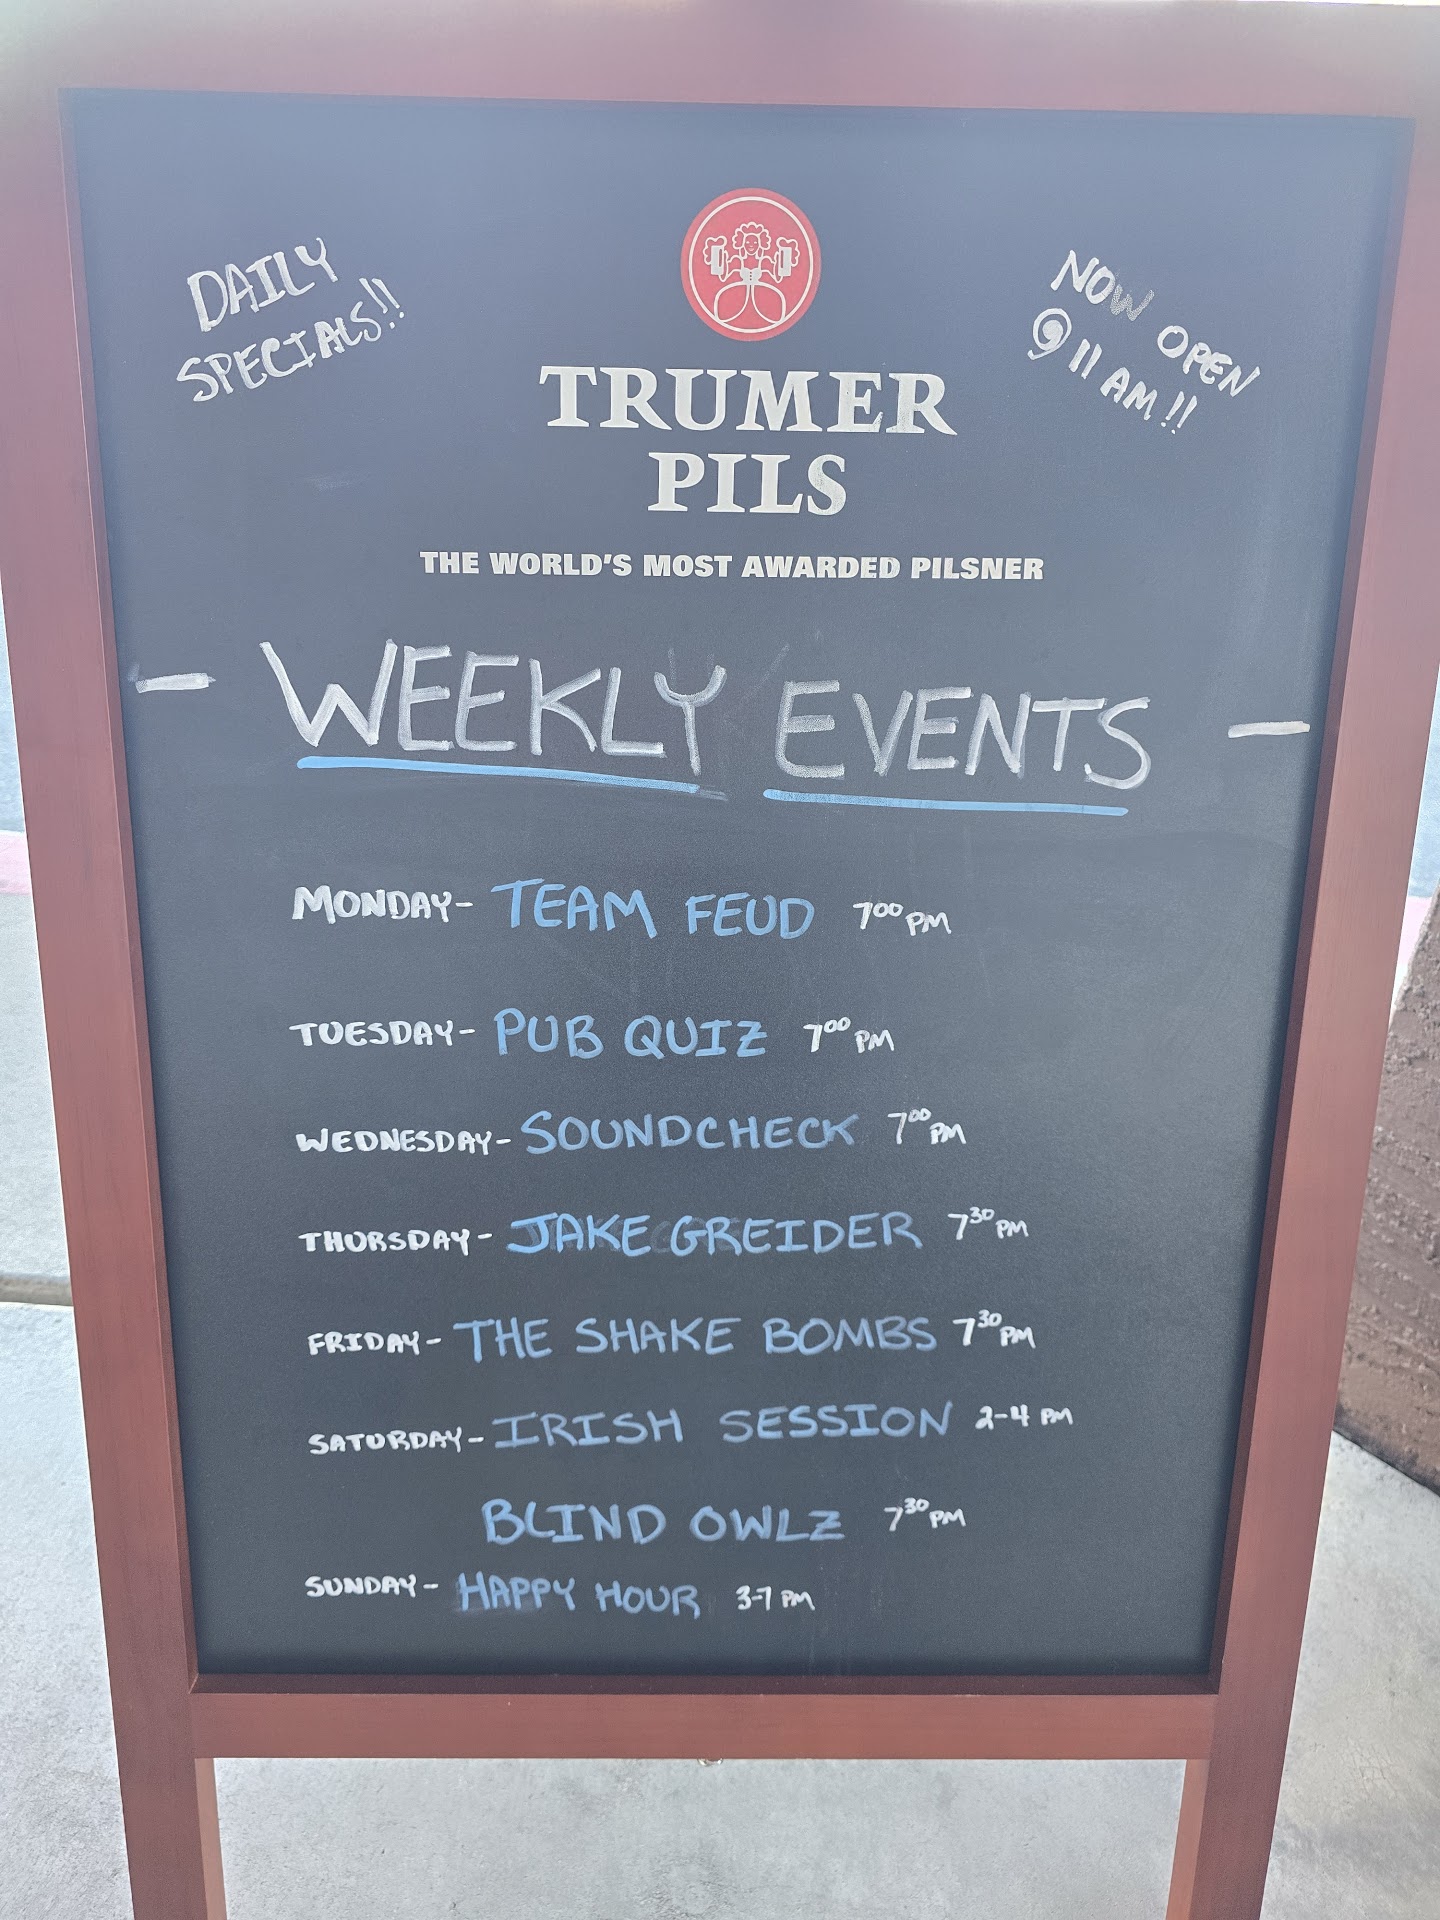 DAILY
SPECIALS!!
NOW OPEN
@ 11 AM!!
TRUMER
PILS
THE WORLD'S MOST AWARDED PILSNER
- WEEKLY EVENTS -
MONDAY- TEAM FEUD 700 PM
TUESDAY- PUB QUIZ 700 PM
WEDNESDAY- SOUNDCHECK 700 PM
THURSDAY- JAKE GREIDER 730 PM
FRIDAY- THE SHAKE BOMBS 730 PM
SATURDAY- IRISH SESSION 2-4 PM
BLIND OWLZ 730 PM
SUNDAY- HAPPY HOUR 3-7 PM